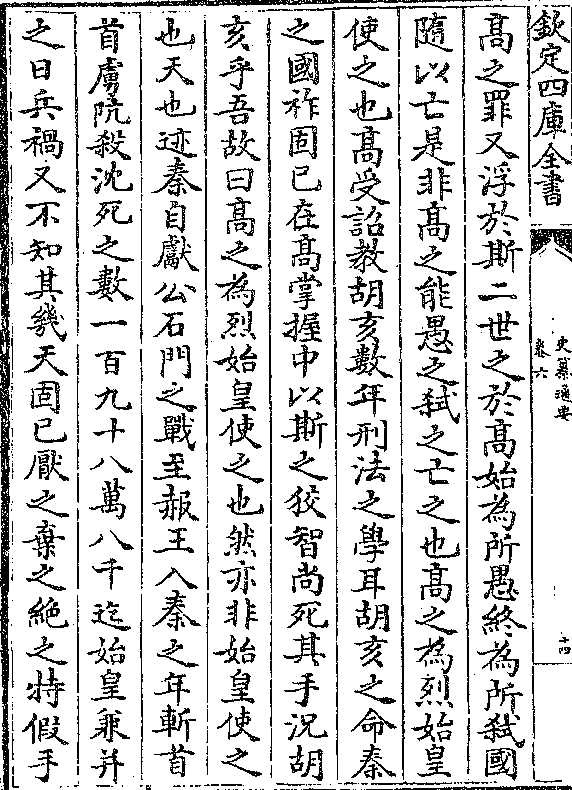 欽定四庫全書
史纂通要
卷六
十四
高之罪又浮於斯二世之於高始為所愚終為所弑國
隨以亡是非高之能愚之弑之亡之也高之為烈始皇
使之也高受詔教胡亥數年刑法之學耳胡亥之命秦
之國祚固已在高掌握中以斯之狡智尚死其手況胡
亥乎吾故曰高之為烈始皇使之也然亦非始皇使之
也天也迹秦自獻公石門之戰至赧王入秦之年斬首
首虜阬殺沈死之數一百九十八萬八千迄始皇兼并
之日兵禍又不知其幾天固已厭之棄之絶之特假手